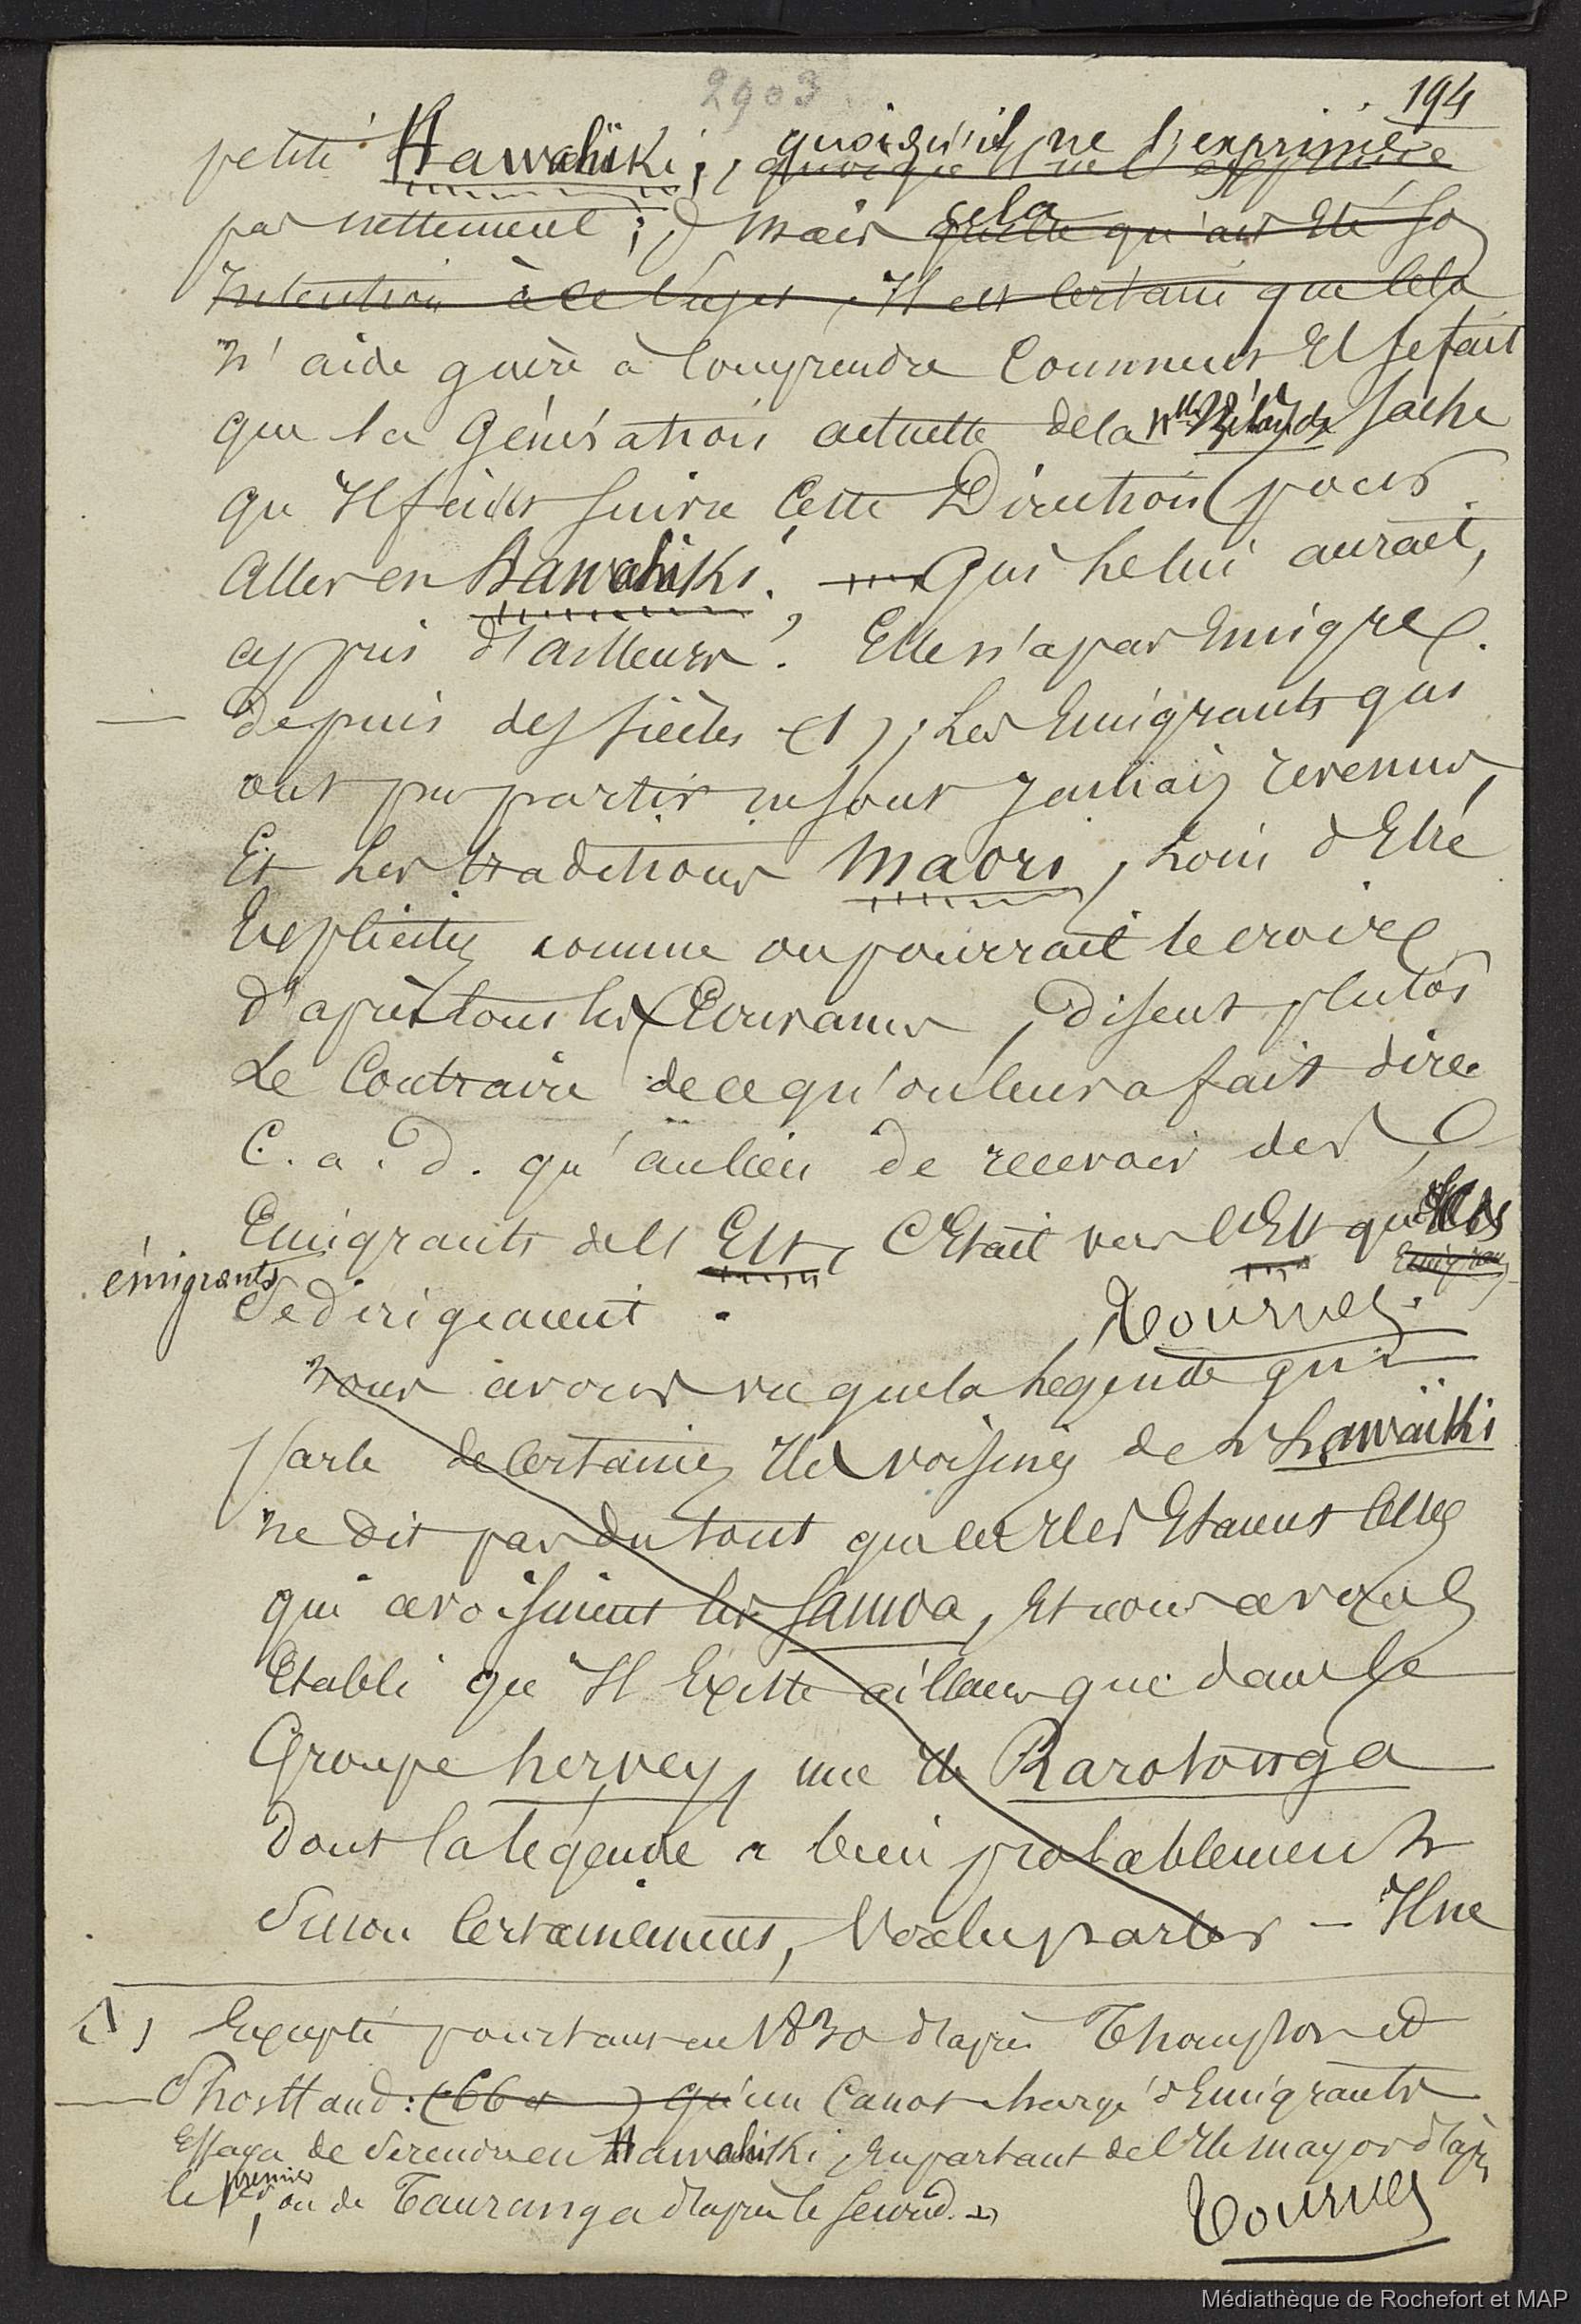 2903
194
petite Hawahiki ; quoiqu'il ne l'exprime
quoiqu'il ne l'exprime
pas nettement ; mais cela quelle qu'ait été son
Intention à ce sujet, Il est certain que cela
n'aide guère à comprendre Comment Il se fait
que la Génération actuelle de la Nlle Zélande sache
qu'Il faille suivre Cette Direction pour
Aller en Hawahiki. Qui le lui aurait,
appris d'ailleurs ? Elle n'a pas Emigré
depuis des siècles (1) ; Les Emigrants qui
ont pu partir ne sont jamais revenus,
Et Les traditions Maori, Loin d'Etre
Explicites comme on pourrait le croire
d'après tous les Ecrivains, disent plutôt
Le Contraire de ce qu'on leur a fait dire
C. a. d. qu'au lieu de recevoir des
Emigrants de l'Est, C'Etait vers l'Est que les
émigrants
Emigrans
se dirigeaient .
Tournez.
Nous avons vu que la Légende qui
Parle de Certaines Iles voisines de L'Hawaïki
ne dit pas du tout que ces Iles Etaient Celles
qui avoisinent les Samoa, Et nous avons
Etabli qu'Il Existe ailleurs que dans le
Groupe hervey, une Ile Rarotonga
dont la légende a bien probablement
Sinon Certainement, Voulu parler – Il ne
(1) Excepté pourtant en 1830 d'après Thompson et
Shortland : (66 ) qu'un Canot chargé d'Emigrants
Essaya de se rendre en Hawahiki, En partant de l'Ile mayor d'après
le premier, ou de Tauranga d'après le second.
Tournez
Médiathèque de Rochefort et MAP